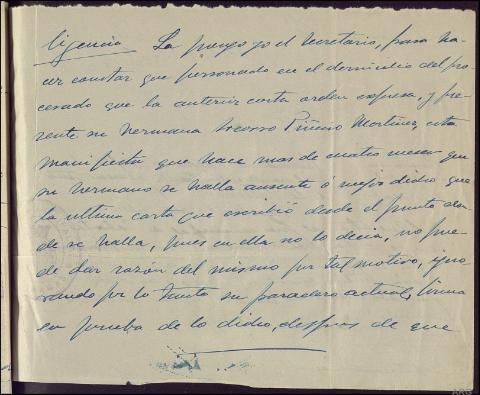 ligencia La pongo yo el Secretario, para ha-
cer constar que personado en el domicilio del pro-
cesado que la anterior carta orden expresa, y pre-
sente su hermana Socorro Piñeiro Martinez, esta
manifiesta que hace mas de cuatro meses que
su hermano se halla ausente ó mejor dicho que
la ultima carta que escribió desde el punto don-
de se halla, pues en ella no lo decia, no pue-
de dar razón del mismo por tal motivo, igno-
rando por lo tanto su paradero actual, firma
en prueba de lo dicho, despues de que
ARG